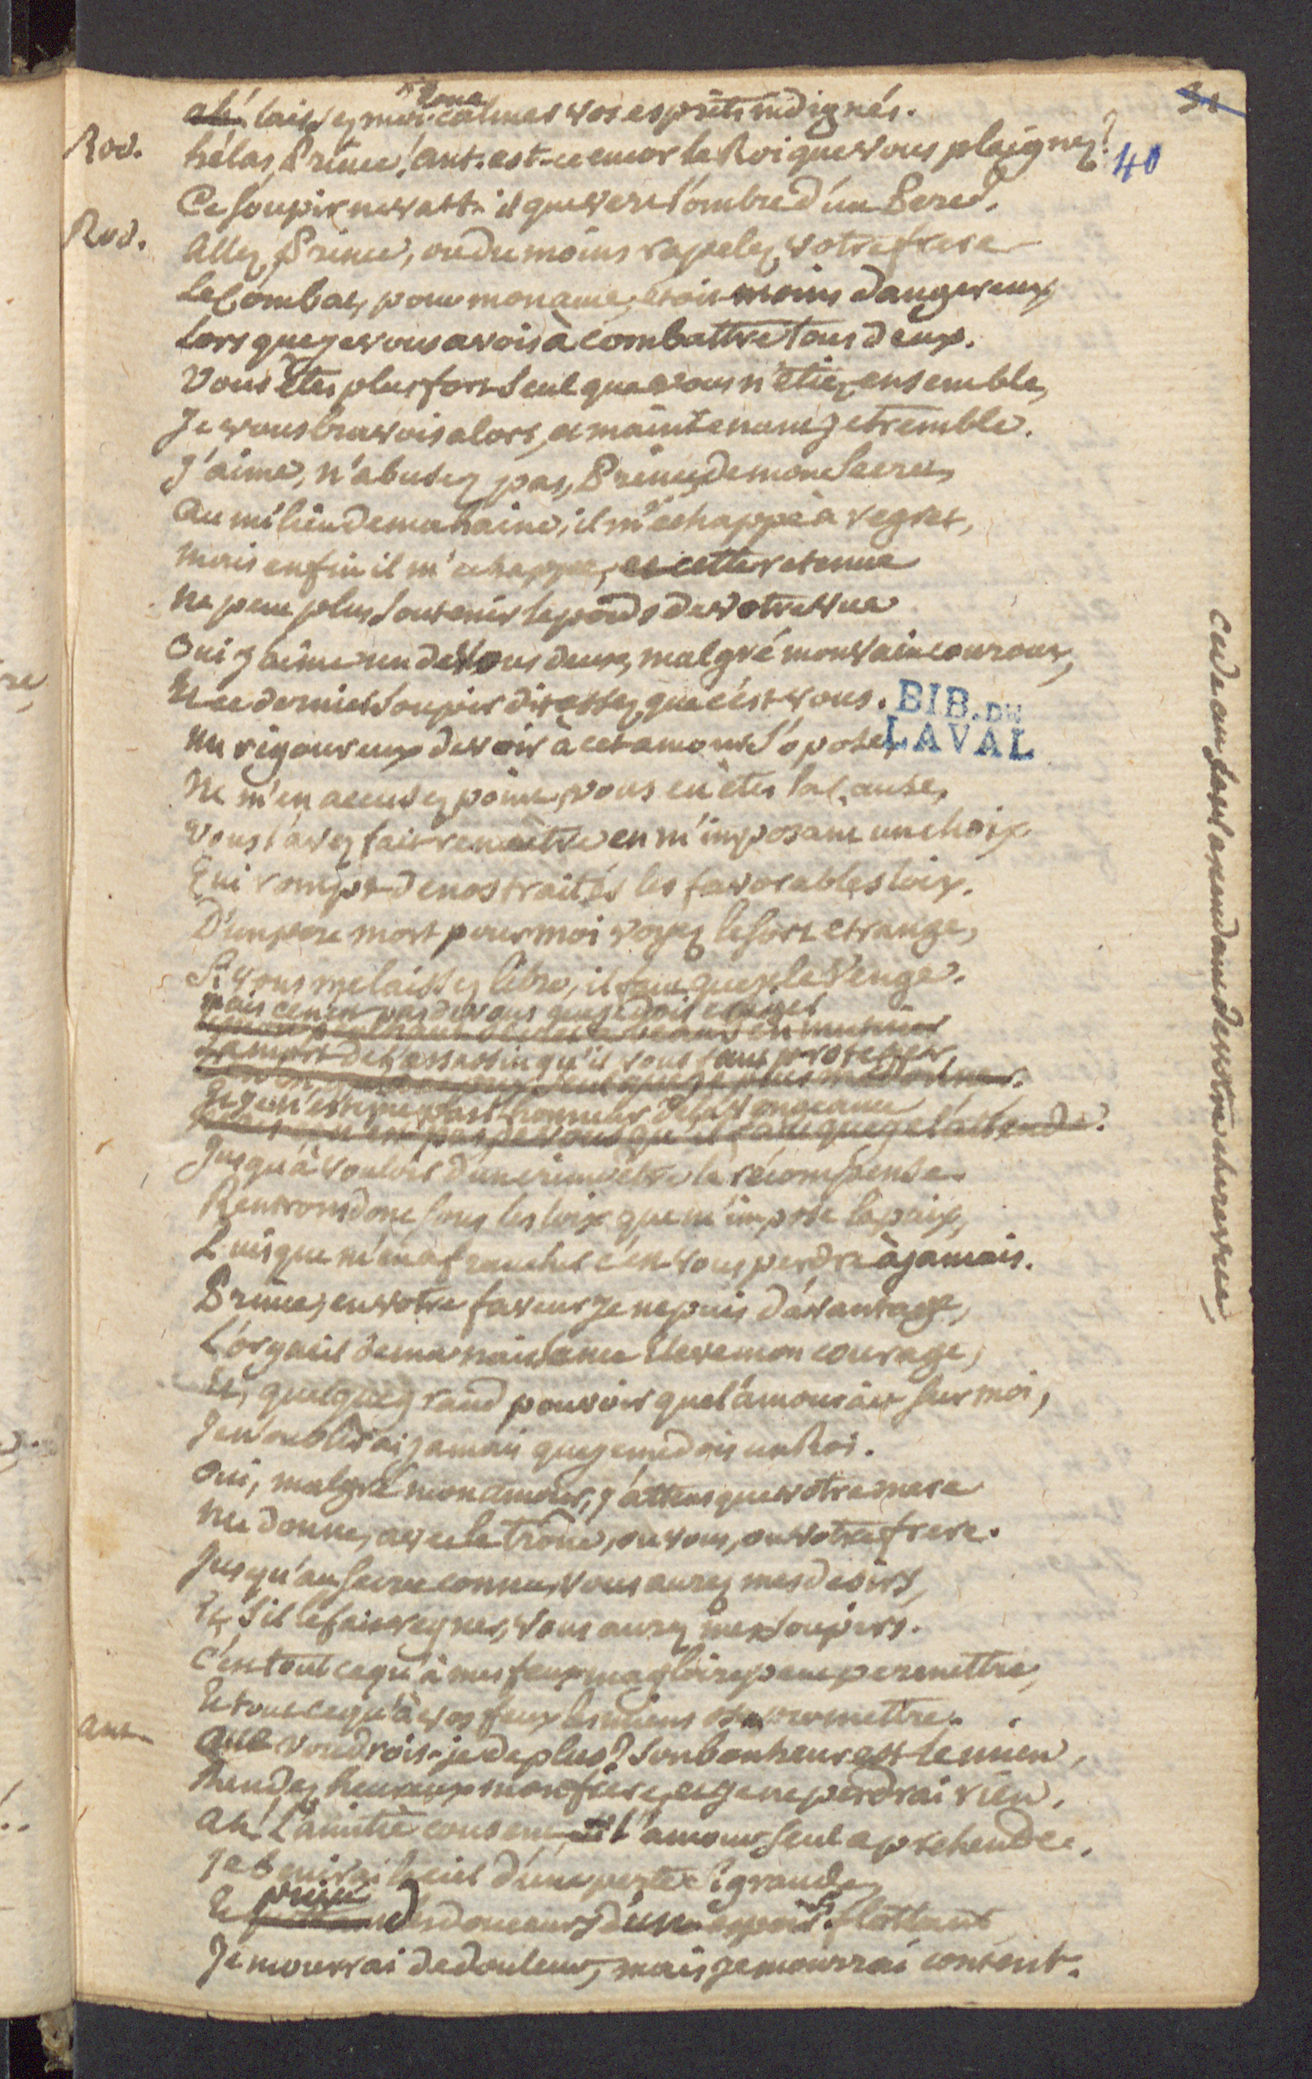 31
40
ah! laissez moi donc calmer vos esprits indignés.
Rod. hélas, Prince! ant. est-ce encor le Roi que vous plaignez?
Ce soupir ne va-t-il que vers l'ombre d'un Pere?
Rod. Allez, Prince, ou du moins rapelez votre frere
Le Combat, pour mon ame, étoit moins dangereux
Lorsque je vous avois à combattre tous deux.
Vous êtes plus fort seul que vous n'étiez ensemble,
Je vous bravois alors, et maintenant je tremble.
J'aime, n'abusez pas, Prince, de mon secret,
Au milieu de ma haine, il m'échappe à regret,
Mais enfin il m'échappe, et cette retenue
Ne peut plus soutenir le poids de votre vue
Oui j'aime un de vous deux, malgré mon vain couroux,
Et ce dernier soupir dit assez que c'est vous.
Un rigoureux devoir à cet amour s'opose,
Ne m'en accusez point, vous en êtes la Cause,
Vous l'avez fait renaître en m'imposant un choix
Qui rompt de nos traités les favorables loix.
D'un pere mort pour moi voyez le sort etrange,
Si vous me laissez libre, il faut que je le venge.
mais ce n'est pas de vous que je dois exiger
La mort de l'assassin qu'il vous faut proteger,
Et je n'estime pas l'honneur de la vengeance
Jusqu'à vouloir d'un crime etre la récompense.
Rentrons donc sous les loix que m'impose la paix,
Puisque m'en afranchir c'est vous perdre à jamais.
Prince, en votre faveur je ne puis d'avantage,
L'orgueil de ma naissance éleve mon courage,
Et, quelque grand pouvoir que l'amour ait sur moi,
Je n'oublirai jamais que je me dois un Roi.
Oui, malgré mon amour, j'attens que votre mere
Me donne, avec le trône, ou vous, ou votre frere.
Jusqu'au secret connu, vous aurez mes desirs,
Et s'il le fait regner, vous aurez mes soupirs.
C'est tout ce qu'à mes feux ma gloire peut permettre,
Et tout ce qu'à vos feux les miens osent promettre.
ant. Que voudrois-je de plus? Son bonheur est le mien,
Rendez heureux mon frere, et je ne perdrai rien.
Ah! L'amitié consent, si l'amour seul aprehende.
Je bénirai le ciel d'une perte si grande,
Et privé des douceurs d'un espoir flottant
Je mourrai de douleur, mais je mourrai content.
BIB. DE
LAVAL
cede au votre chere vue